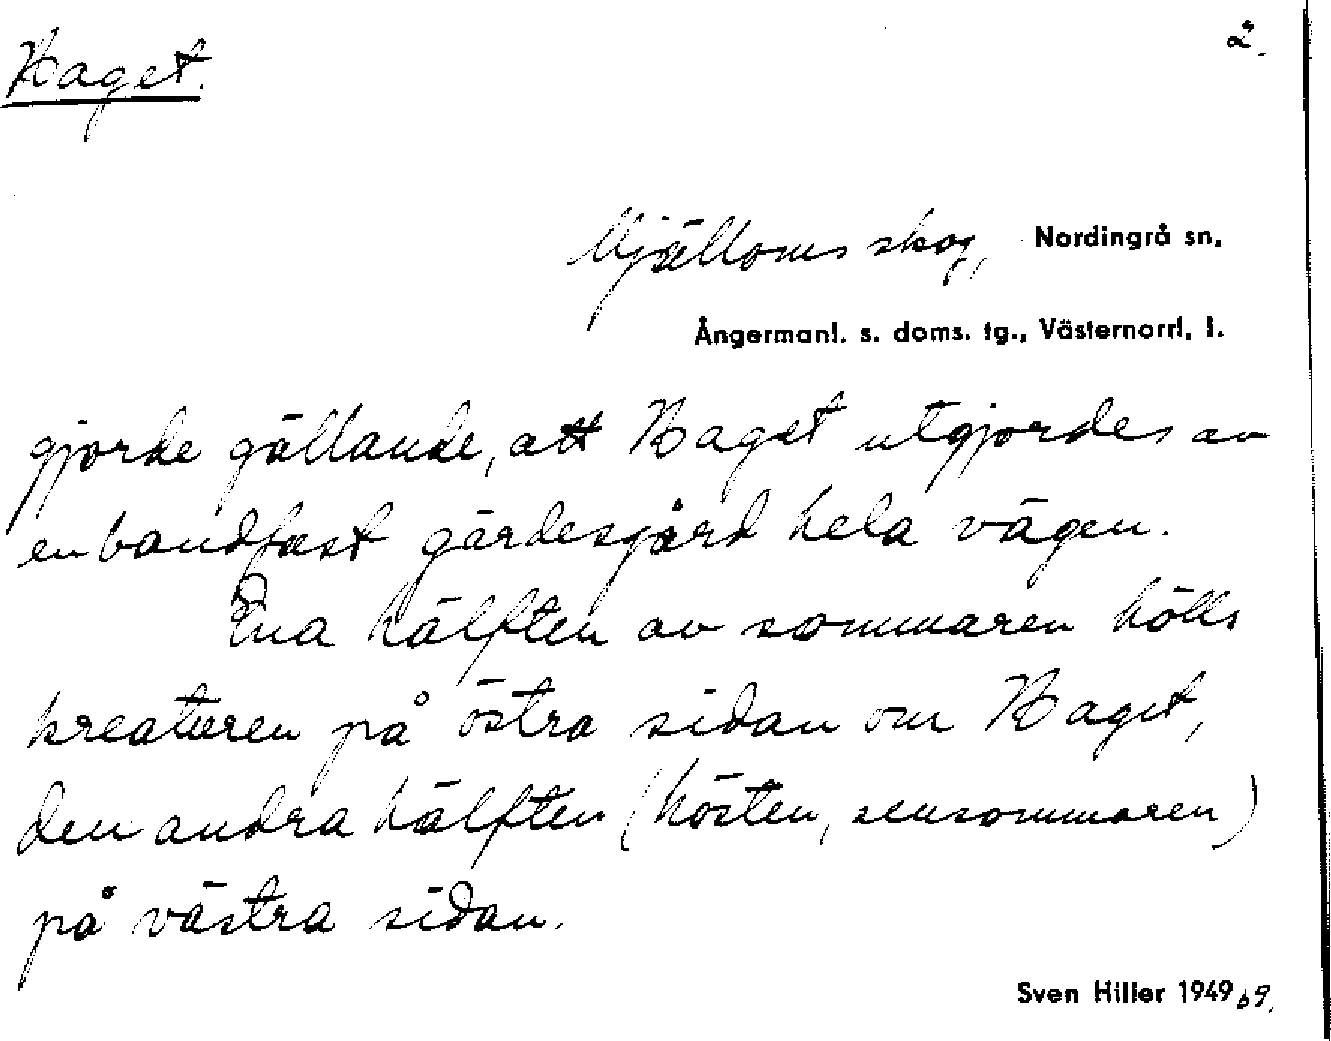 Haget.
2.
Mjälloms skog, Nordingrå sn.
Ångermanl. s. doms. tg., Västernorrl. l.
gjorde gällande, att Haget utgjordes av
en bandfast gärdesgård hela vägen.
Ena hälften av sommaren hölls
kreaturen på östra sidan om Haget,
den andra hälften (hösten, sensommaren)
på västra sidan.
Sven Hiller 1949 69.